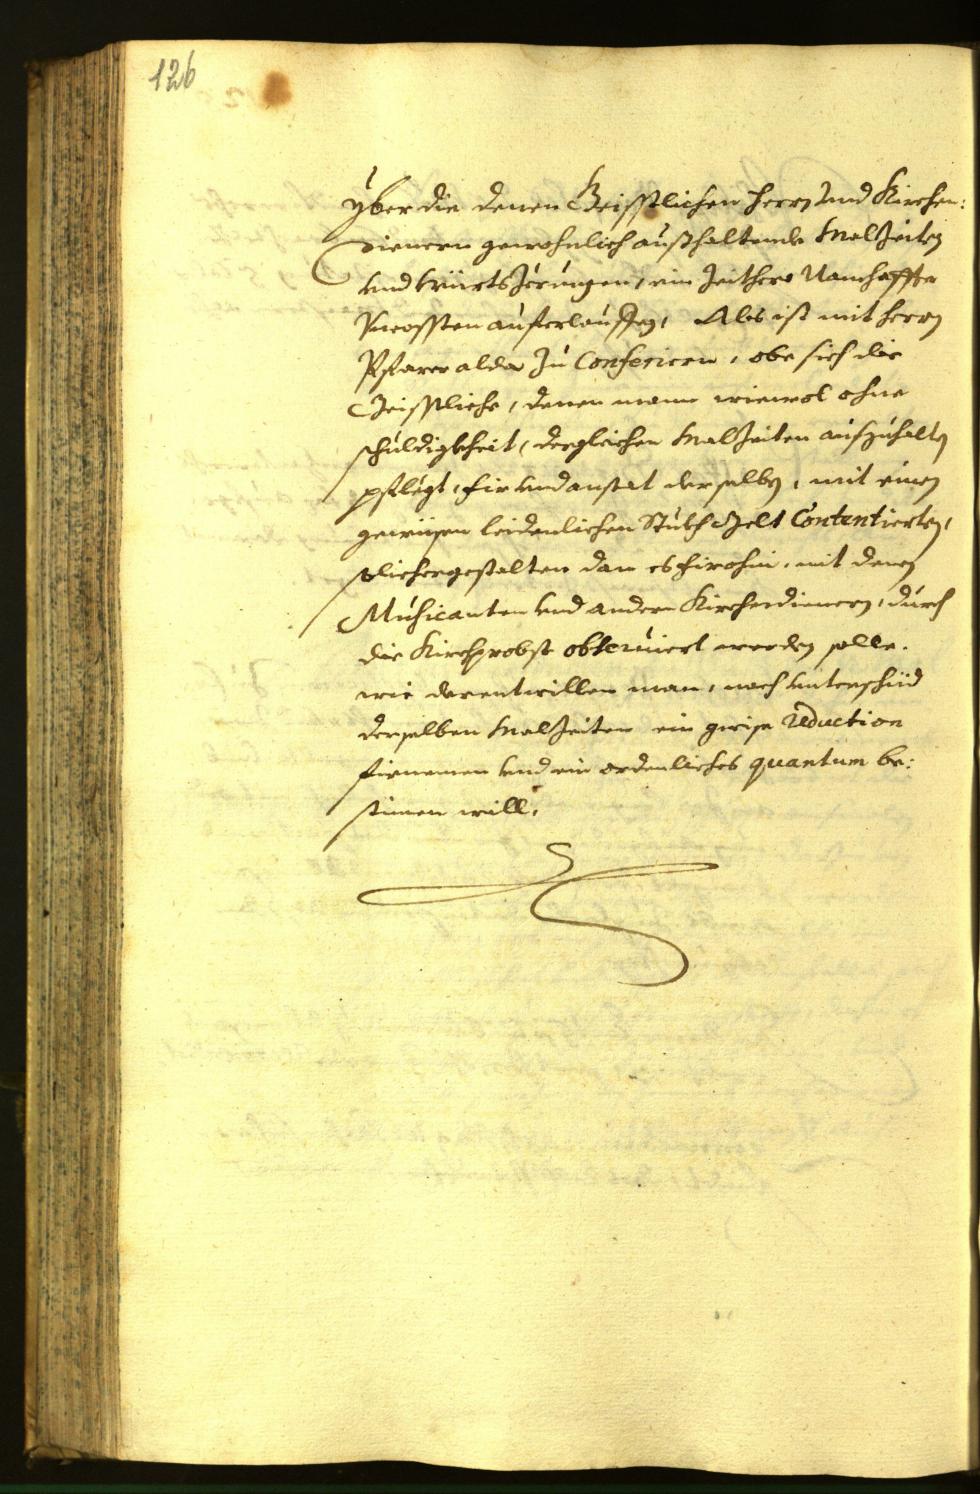 126
yber die denen Geisstlichen herrn vnd Kirchen:
dienern gewohnlich ausshaltende Malzeiten
vnd Würtszörungen, ein Zeithero Namhaffte
Vncossten aufferlauffen, Als ist mit herrn
Pfarrer alda zu Conferiern, obe sich die
Geisstliche, denen mann wiewol ohne
schuldigkheit, dergleichen Malzeiten ausszuhalten
pflegt, fir vnd anstat derselben, mit einen
gewisen leidenlichen Stukh Gelt Contentierten,
solichergestalten dan es firohin, mit denen
Musicanten vnd andern Kirchendienern, durch
die Kirchprobst observiert werden solle.
wie derentwillen man, nach vnterschiid
derselben Malzeiten ein gwise reduction
firnemen vnd ein ordenliches quantum be:
stimen will.